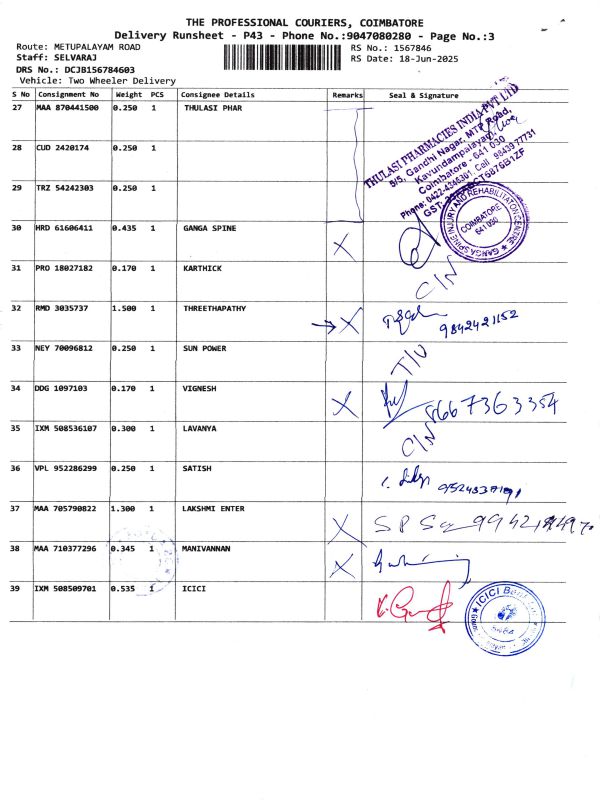 THE PROFESSIONAL COURIERS, COIMBATORE
Delivery Runsheet - P43 - Phone No.:9047080280 - Page No.:3
Route: METUPALAYAM ROAD RS No.: 1567846
Staff: SELVARAJ RS Date: 18-Jun-2025
DRS No.: DCJB156784603
Vehicle: Two Wheeler Delivery
S No Consignment No Weight PCS Consignee Details Remarks Seal & Signature
27 MAA 870441500 0.250 1 THULASI PHAR
THULASI PHARMACIES INDIA PVT LTD
9/5, Gandhi Nagar, MTP Road,
Kavundampalayam,
Coimbatore - 641 030
28 CUD 2420174 0.250 1
29 TRZ 54242303 0.250 1
GANGA SPINE INJURY AND REHABILITATION CENTRE
COIMBATORE
641 030
30 HRD 61606411 0.435 1 GANGA SPINE X
31 PRO 18027182 0.170 1 KARTHICK C/N
32 RMD 3035737 1.500 1 THREETHAPATHY X 9842421152
33 NEY 70096812 0.250 1 SUN POWER
34 DDG 1097103 0.170 1 VIGNESH X 8667363354
35 IXM 508536107 0.300 1 LAVANYA C/N
36 VPL 952286299 0.250 1 SATISH
37 MAA 705790822 1.300 1 LAKSHMI ENTER X
38 MAA 710377296 0.345 1 MANIVANNAN X
39 IXM 508509701 0.535 1 ICICI
ICICI Bank